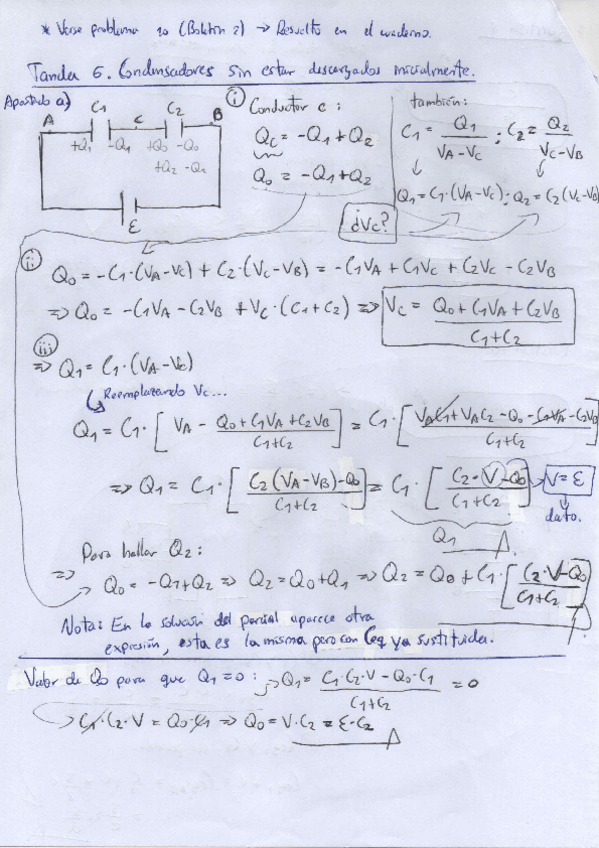 * Verse problema 10 (Boletín 2) → Resuelto en el cuaderno.
Tanda 6. Condensadores sin estar descargados inicialmente.
Apartado a)
C1 C2
A C B
+Q1 -Q1 +Q0 -Q0
+Q2 -Q2
ε
i Conductor c:
Qc = -Q1+Q2
Q0 = -Q1+Q2
también:
C1 = Q1/(VA-VC) ; C2 = Q2/(VC-VB)
Q1 = C1·(VA-VC) ; Q2 = C2(VC-VB)
¿VC?
ii Q0 = -C1·(VA-VC) + C2·(VC-VB) = -C1VA + C1VC + C2VC - C2VB
⇒ Q0 = -C1VA - C2VB + VC·(C1+C2) ⇒ VC = (Q0+C1VA+C2VB)/(C1+C2)
iii
⇒ Q1 = C1·(VA-VC)
Reemplazando VC...
Q1 = C1·[VA - (Q0+C1VA+C2VB)/(C1+C2)] = C1·[(VAC1+VAC2-Q0-C1VA-C2VB)/(C1+C2)]
⇒ Q1 = C1·[(C2(VA-VB)-Q0)/(C1+C2)] = C1·[(C2·V-Q0)/(C1+C2)] → V=ε
dato.
Q1
⇒ Para hallar Q2:
Q0 = -Q1+Q2 ⇒ Q2 = Q0+Q1 ⇒ Q2 = Q0+C1·[(C2·V-Q0)/(C1+C2)]
Nota: En la solución del parcial aparece otra
expresión, esta es la misma pero con Ceq ya sustituida.
Valor de Q0 para que Q1=0: → Q1 = (C1·C2·V-Q0·C1)/(C1+C2) = 0
→ C1·C2·V = Q0·C1 ⇒ Q0 = V·C2 = ε·C2